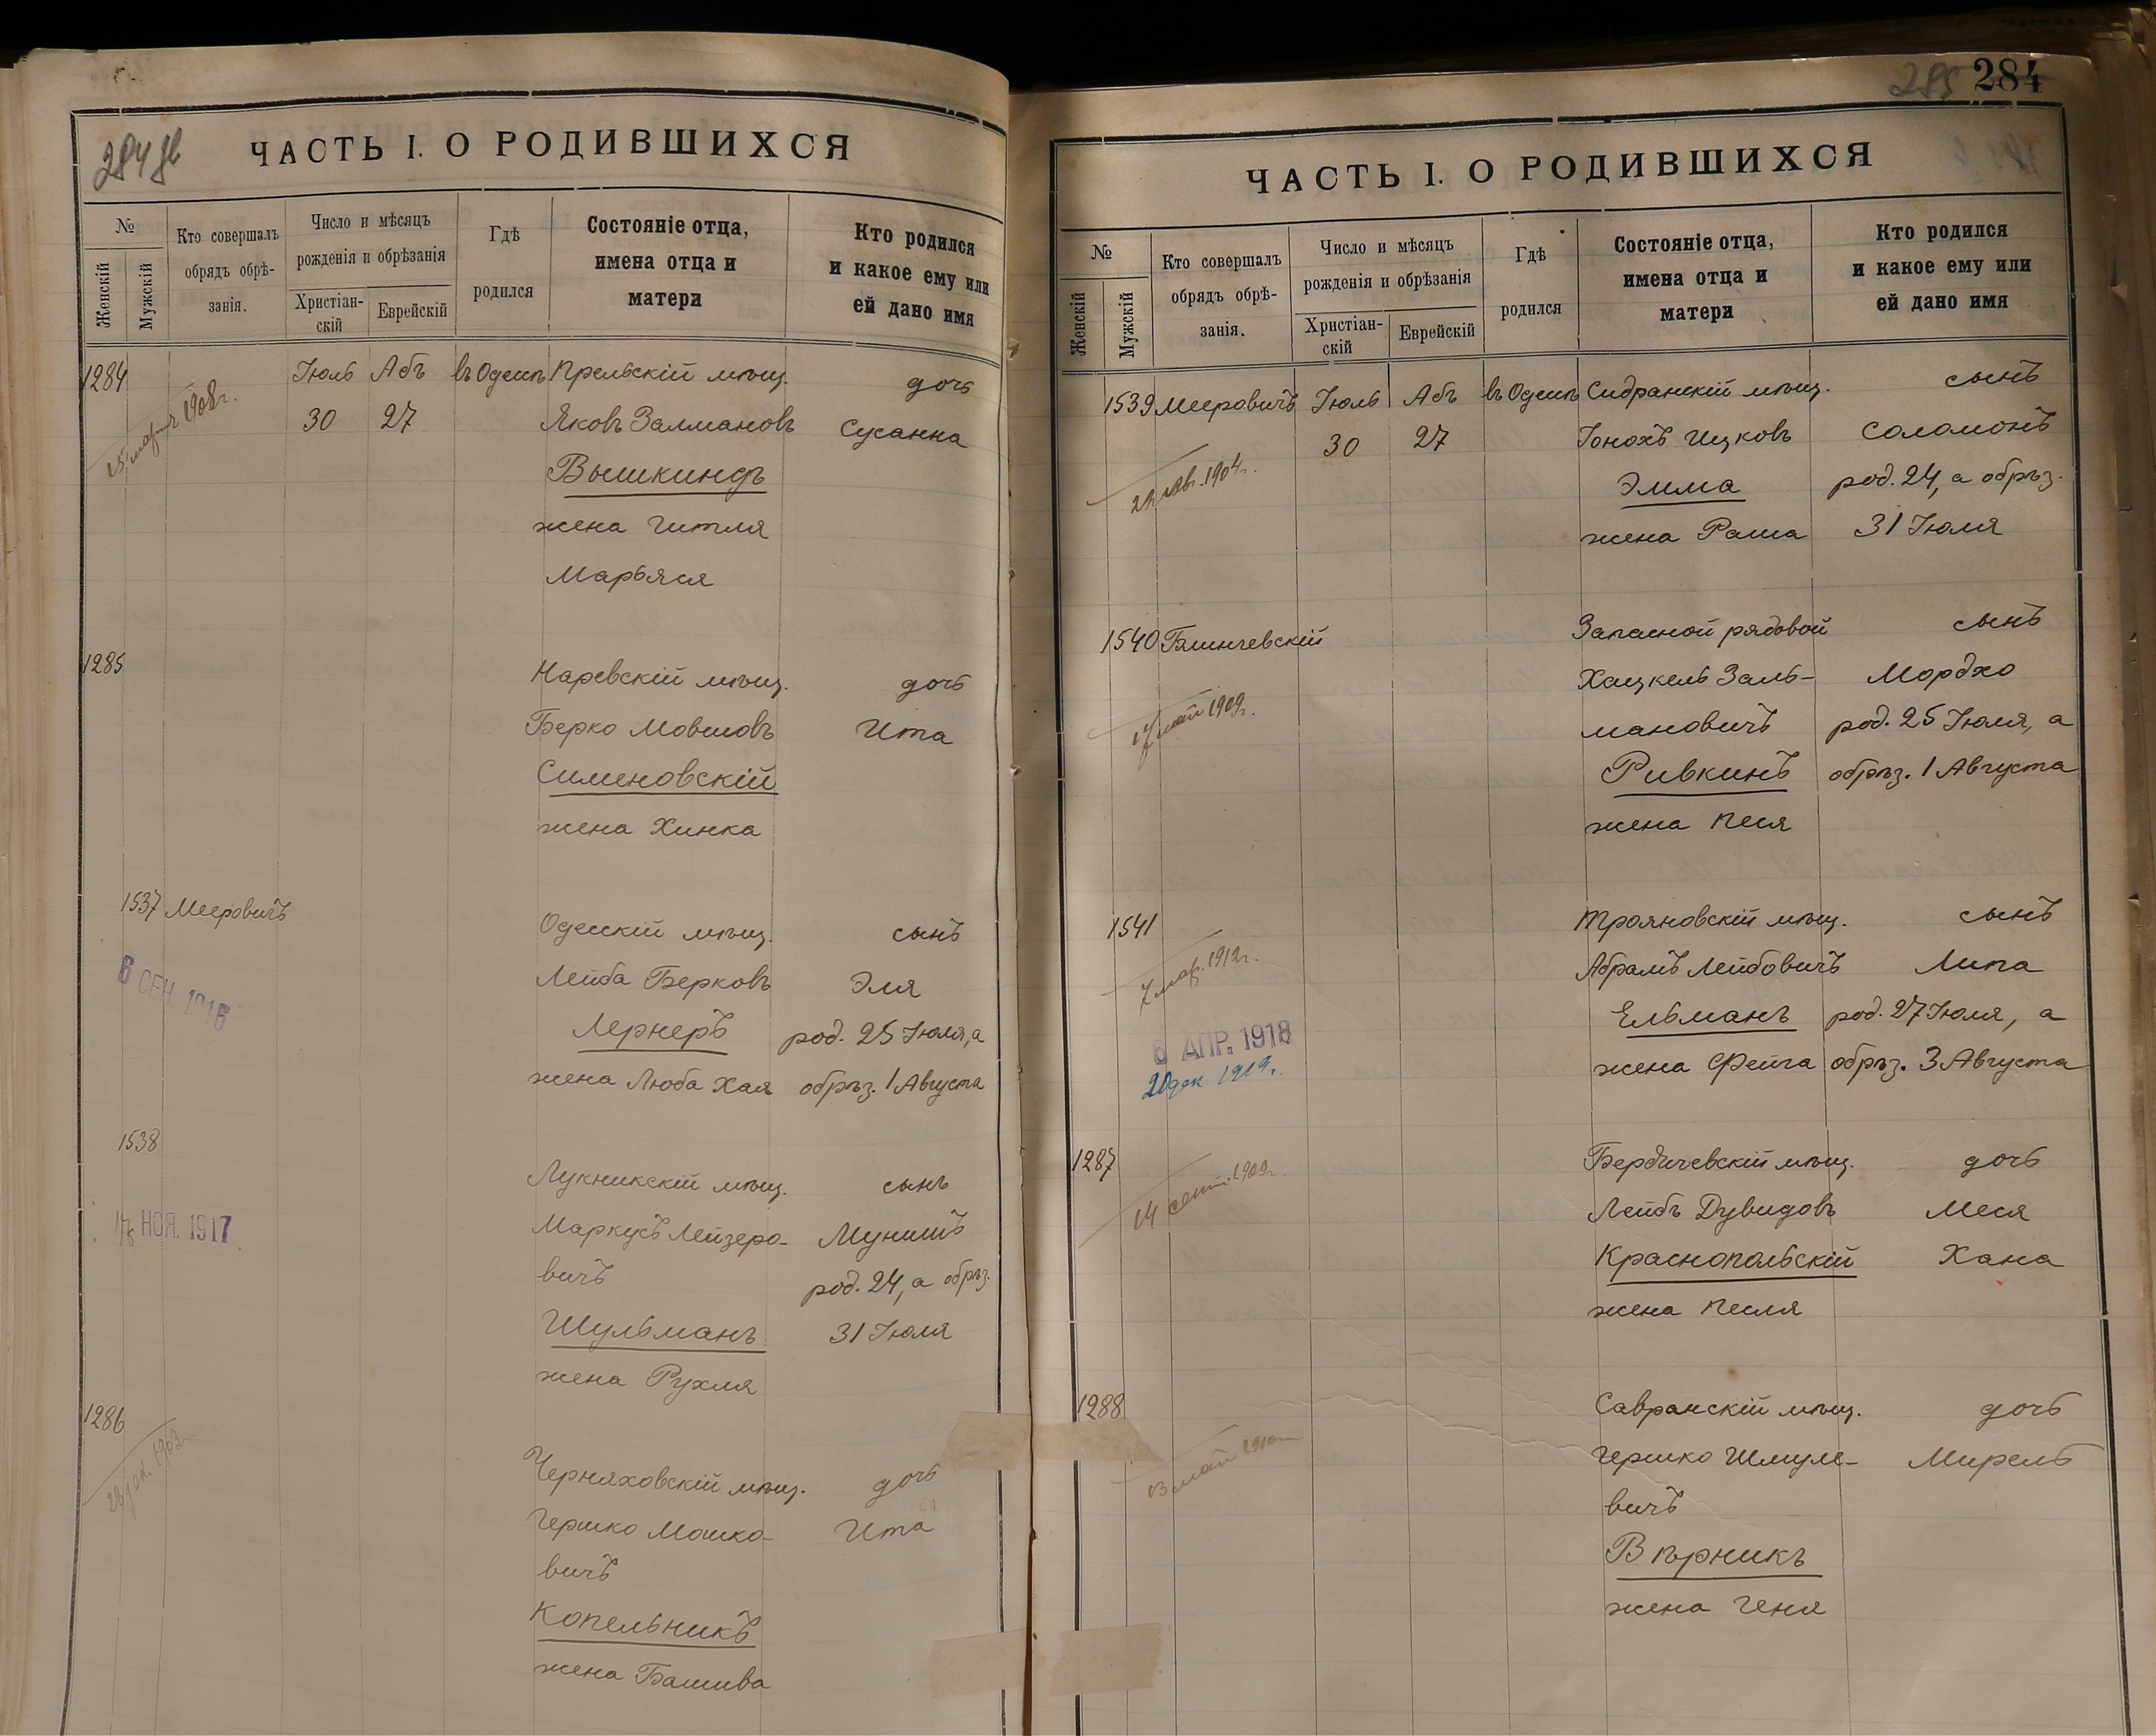 284 об
ЧАСТЬ I. О РОДИВШИХСЯ
№
Женскій
Мужскій
Кто совершалъ
обрядъ обрѣ-
занія.
Число и мѣсяцъ
рожденія и обрѣзанія
Христіан-
скій
Еврейскій
Гдѣ
родился
Состояніе отца,
имена отца и
матери
Кто родился
и какое ему или
ей дано имя
1284
Іюль Абъ въ Одессѣ Прельскій мѣщ. дочь
15 март 1908 г.
30 27 Яковъ Залмановъ Сусанна
Вышкиндъ
жена Гитля
Марьяся
1285
Наревскій мѣщ. дочь
Берко Мовшовъ Ита
Сименовскій
жена Хинка
1537 Мееровичъ
Одесскій мѣщ. сынъ
6 СЕН. 1916
Лейба Берковъ Эля
Лернеръ род. 25 Іюля, а
жена Люба Хая обрѣз. 1 Августа
1538
Лукникскій мѣщ. сынъ
НОЯ. 1917
Маркусъ Лейзеро- Мунишъ
вичъ род. 24, а обрѣз.
Шульманъ 31 Іюля
жена Рухля
1286
Черняховскій мѣщ. дочь
Гершко Мошко- Ита
вичъ
Копельникъ
жена Башива
285 284
ЧАСТЬ I. О РОДИВШИХСЯ
№
Женскій
Мужскій
Кто совершалъ
обрядъ обрѣ-
занія.
Число и мѣсяцъ
рожденія и обрѣзанія
Христіан-
скій
Еврейскій
Гдѣ
родился
Состояніе отца,
имена отца и
матери
Кто родился
и какое ему или
ей дано имя
1539 Мееровичъ Іюль Абъ въ Одессѣ Сидранскій мѣщ. сынъ
30 27 Іонохъ Ицковъ Соломонъ
1904 г.
Эмма род. 24, а обрѣз.
жена Раша 31 Іюля
1540 Блинчевскій Запасной рядовой сынъ
Хацкель Заль- Мордко
17 май 1909 г.
мановичъ род. 25 Іюля, а
Ривкинъ обрѣз. 1 Августа
жена Песя
1541
Трояновскій мѣщ. сынъ
7 мар. 1912 г.
Абрамъ Лейбовичъ Липа
Ельманъ род. 27 Іюля, а
6 АПР. 1918
20 дек 1919 г.
жена Фейга обрѣз. 3 Августа
1287
Бердичевскій мѣщ. дочь
14 сент. 1909 г.
Лейбъ Дувидовъ Меся
Краснопольскій Хана
жена Песля
1288
Савранскій мѣщ. дочь
Гершко Шмуле- Мирель
вичъ
Вѣрникъ
жена Геня